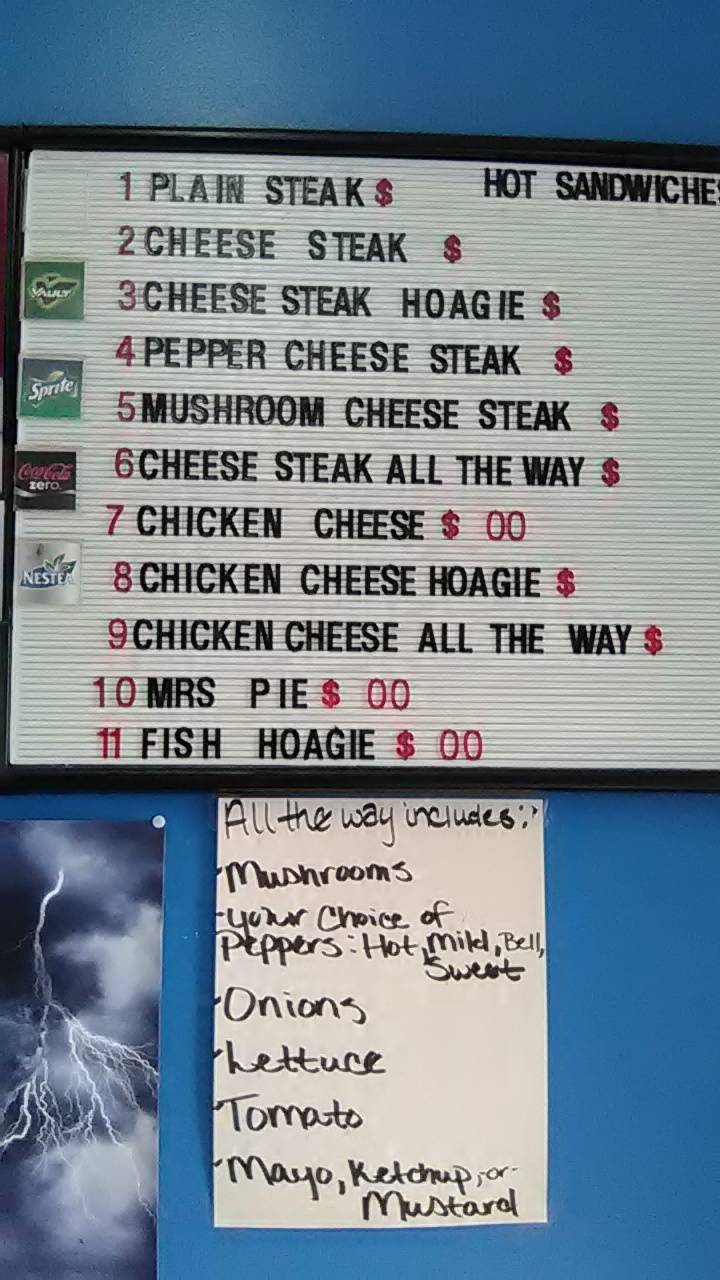 1 PLAIN STEAK $
HOT SANDWICHES
2 CHEESE STEAK $
3 CHEESE STEAK HOAGIE $
4 PEPPER CHEESE STEAK $
5 MUSHROOM CHEESE STEAK $
6 CHEESE STEAK ALL THE WAY $
7 CHICKEN CHEESE $ 00
8 CHICKEN CHEESE HOAGIE $
9 CHICKEN CHEESE ALL THE WAY $
10 MRS PIE $ 00
11 FISH HOAGIE $ 00
VAULT
Sprite
Coca-Cola
zero
NESTEA
All the way includes:
-Mushrooms
-your Choice of
Peppers: Hot, Mild, Bell,
Sweet
-Onions
-Lettuce
-Tomato
-Mayo, Ketchup, or
Mustard